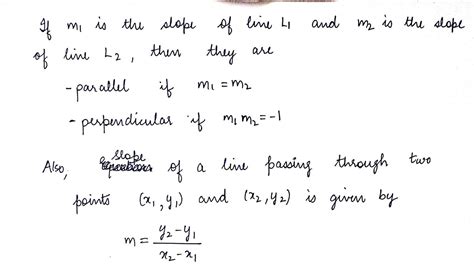 If m₁ is the slope of line L₁ and m₂ is the slope
of line L₂, then they are
- parallel if m₁ = m₂
- perpendicular if m₁ m₂ = -1
Also, slope of a line passing through two
points (x₁, y₁) and (x₂, y₂) is given by
m = y₂ - y₁ / x₂ - x₁